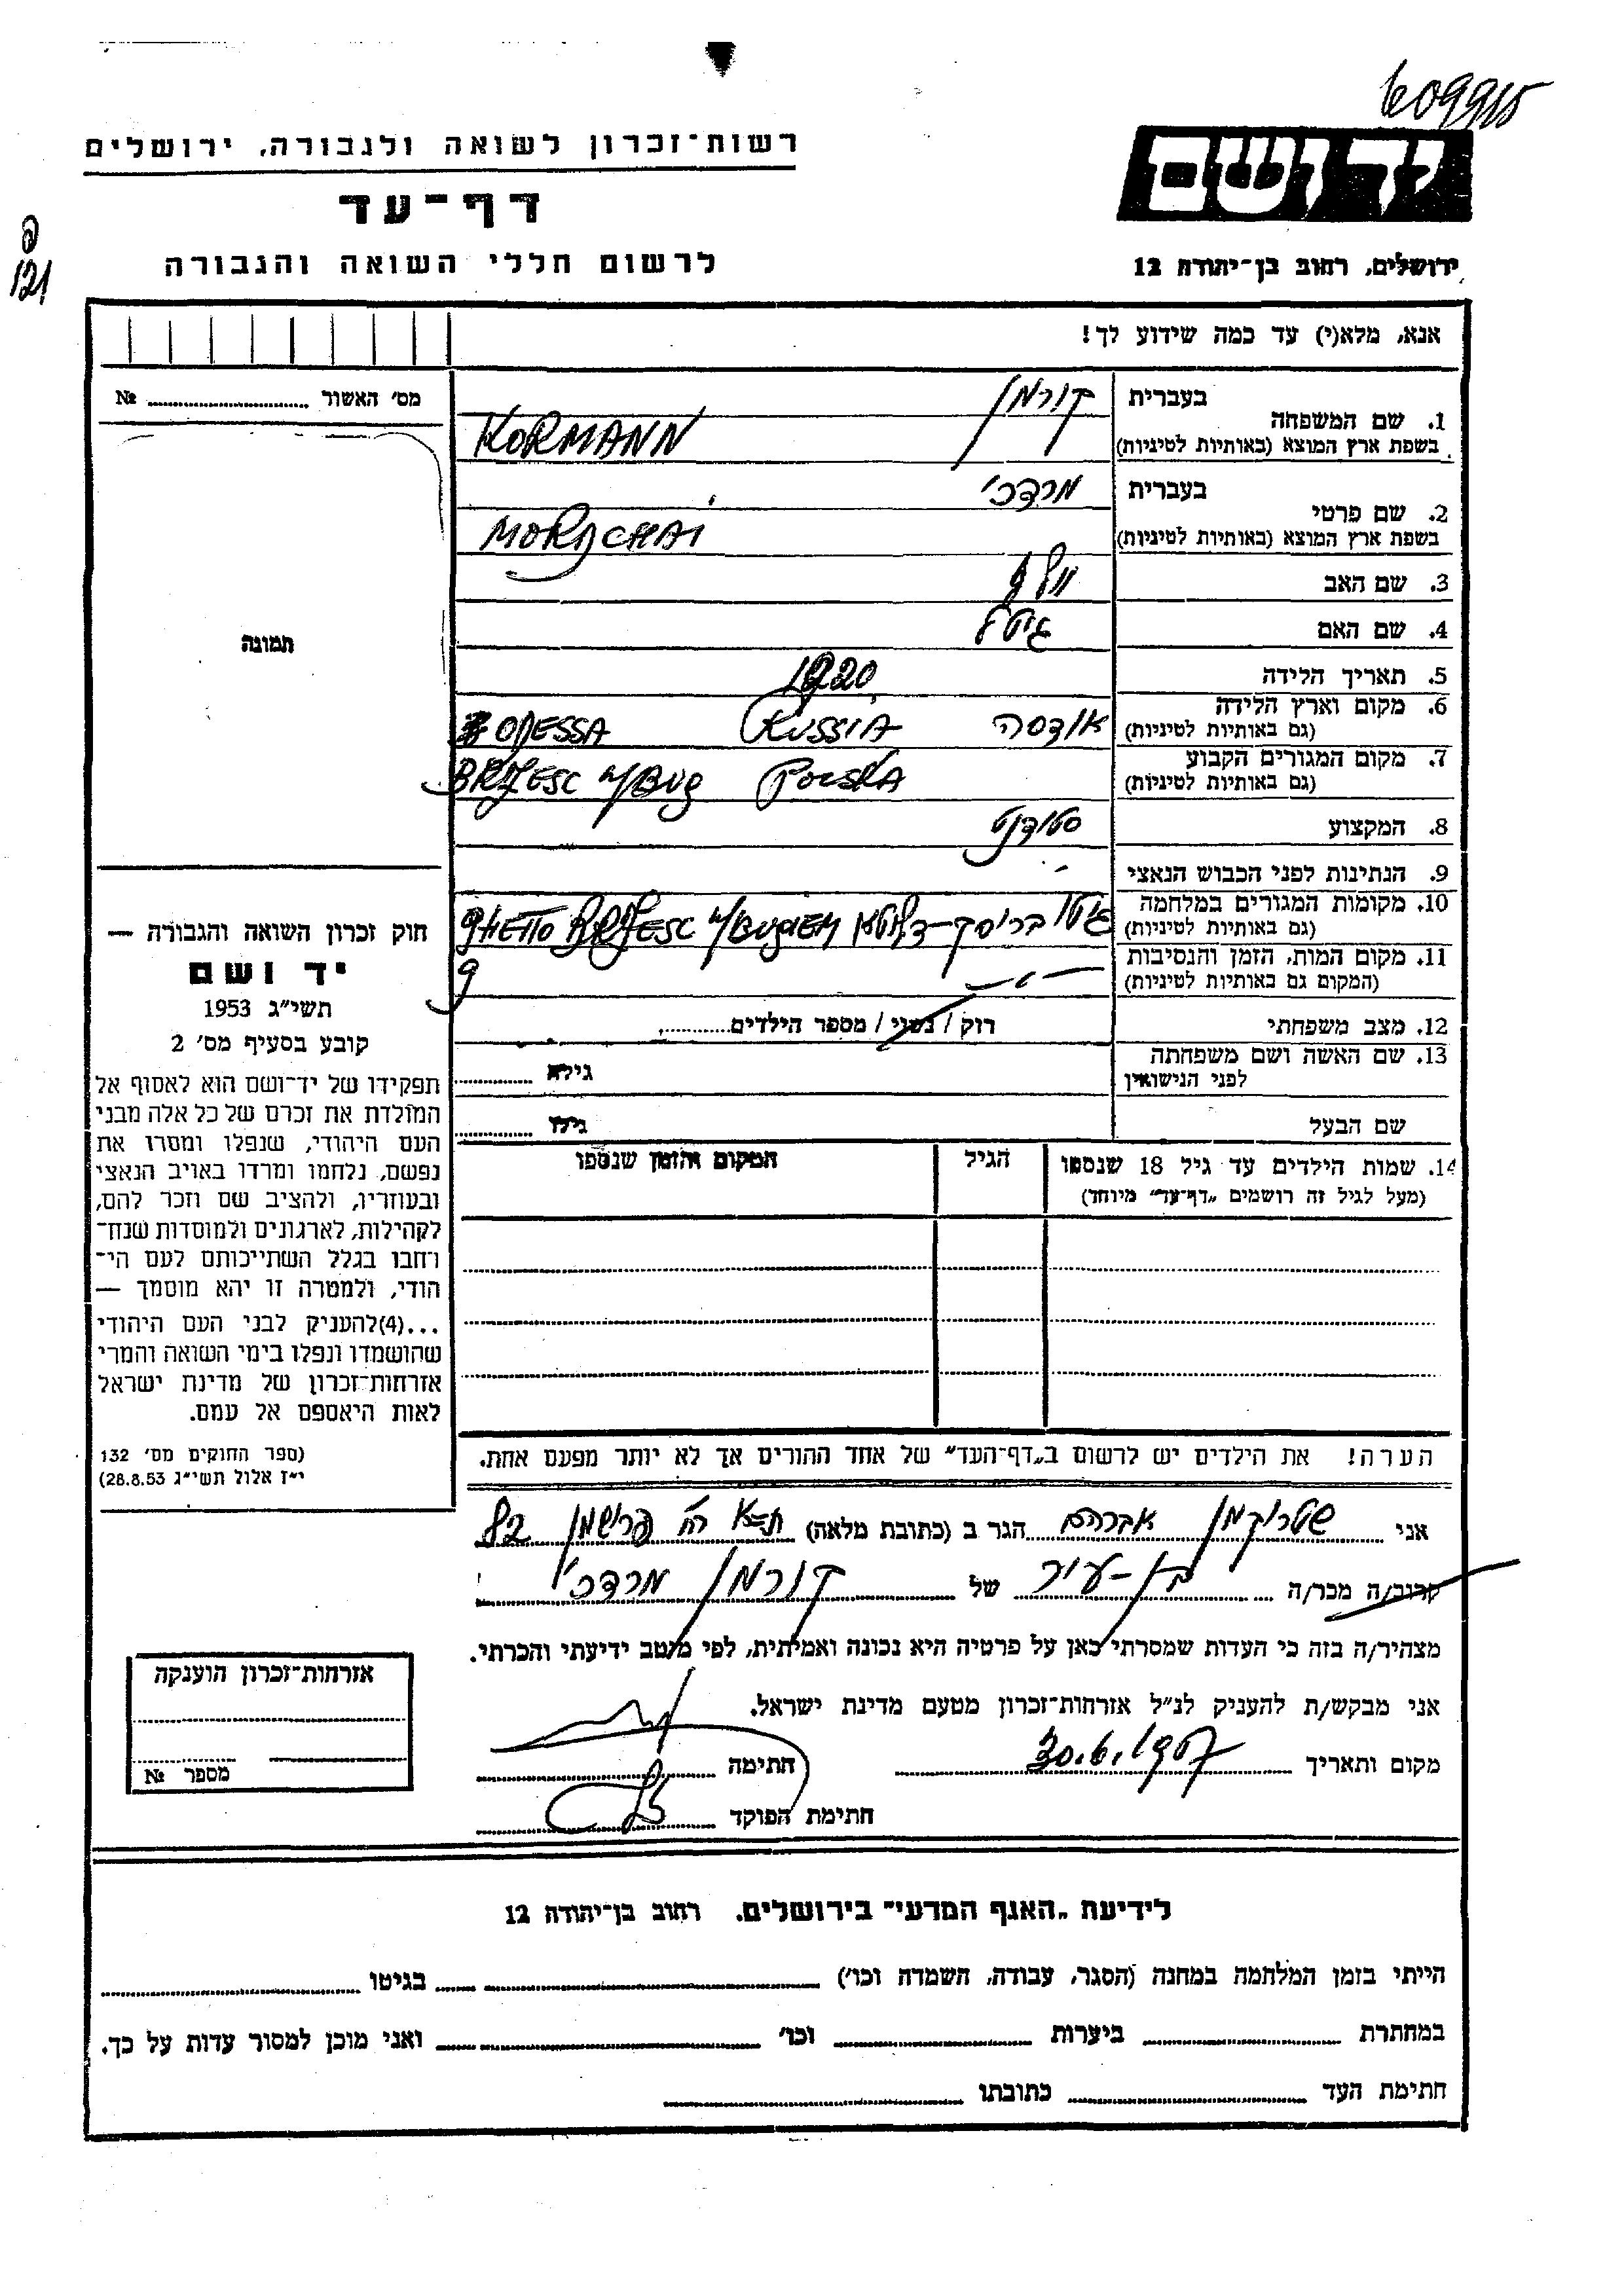 609915
יד ושם
רשות־זכרון לשואה ולגבורה, ירושלים
דף־עד
לרשום חללי השואה והגבורה
ירושלים, רחוב בן־יהודה 12
121
אנא, מלא(י) עד כמה שידוע לך!
מס׳ האשור № 
תמונה
1. שם המשפחה בעברית קורמן
בשפת ארץ המוצא (באותיות לטיניות) KORMANN
2. שם פרטי בעברית מרדכי
בשפת ארץ המוצא (באותיות לטיניות) MORDCHAI
3. שם האב וולף
4. שם האם
5. תאריך הלידה 1920
6. מקום וארץ הלידה (גם באותיות לטיניות) אודסה RUSSIA ODESSA
7. מקום המגורים הקבוע (גם באותיות לטיניות) BRZESC n/BUG POLSKA
8. המקצוע סטודנט
9. הנתינות לפני הכבוש הנאצי -
10. מקומות המגורים במלחמה (גם באותיות לטיניות) גיטו בריסק-דליטא GHETTO BRZESC n/BUGIEM
11. מקום המות, הזמן והנסיבות (המקום גם באותיות לטיניות)
12. מצב משפחתי רוק / נשוי / מספר הילדים
13. שם האשה ושם משפחתה לפני הנישואין גילה
שם הבעל גילו
14. שמות הילדים עד גיל 18 שנספו הגיל המקום והזמן שנספו
(מעל לגיל זה רושמים „דף־עד״ מיוחד)
חוק זכרון השואה והגבורה —
יד ושם
תשי״ג 1953
קובע בסעיף מס׳ 2
תפקידו של יד־ושם הוא לאסוף אל
המולדת את זכרם של כל אלה מבני
העם היהודי, שנפלו ומסרו את
נפשם, נלחמו ומרדו באויב הנאצי
ובעוזריו, ולהציב שם וזכר להם,
לקהילות, לארגונים ולמוסדות שנח־
רחבו בגלל השתייכותם לעם הי־
הודי, ולמטרה זו יהא מוסמך —
...(4) להעניק לבני העם היהודי
שהושמדו ונפלו בימי השואה והמרי
אזרחות־זכרון של מדינת ישראל
לאות היאספם אל עמם.
(ספר החוקים מס׳ 132
י״ז אלול תשי״ג 28.8.53)
הערה! את הילדים יש לרשום ב„דף־העד״ של אחד ההורים אך לא יותר מפעם אחת.
אני שטרוקמן אברהם הגר ב (כתובת מלאה) ת״א רח׳ פרישמן 82
קרוב/ה מכר/ה בן-עיר של קורמן מרדכי
מצהיר/ה בזה כי העדות שמסרתי כאן על פרטיה היא נכונה ואמיתית, לפי מיטב ידיעתי והכרתי.
אני מבקש/ת להעניק לנ״ל אזרחות־זכרון מטעם מדינת ישראל.
מקום ותאריך 30.6.1957 חתימה
חתימת הפוקד
אזרחות־זכרון הוענקה
מספר №
לידיעת „האגף המדעי״ בירושלים. רחוב בן־יהודה 12
הייתי בזמן המלחמה במחנה (הסגר, עבודה, השמדה וכו׳) בגיטו
במחתרת ביערות וכו׳ ואני מוכן למסור עדות על כך.
חתימת העד כתובתו